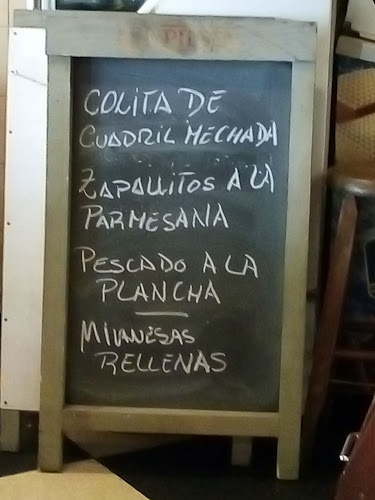 COLITA DE
CUADRIL MECHADA
ZAPALLITOS A LA
PARMESANA
PESCADO A LA
PLANCHA
MILANESAS
RELLENAS